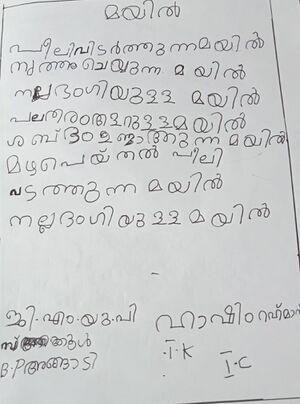 മയിൽ
പീലിവിടർത്തുന്നമയിൽ
നൃത്തംചെയ്യുന്ന മയിൽ
നല്ലഭംഗിയുള്ള മയിൽ
പലതിരംതളളുള്ളമയിൽ
ശബ്ദംഉണ്ടാത്തുന്ന മയിൽ
മഴപെയ്തൽ പീലി
വടത്തുന്ന മയിൽ
നല്ലഭംഗിയുള്ള മയിൽ
ജി.എം.യു.പി ഹാഷിം റഹ്മാൻ
സ്തൂൾ I.K
B.Pഅങ്ങാടി I.C